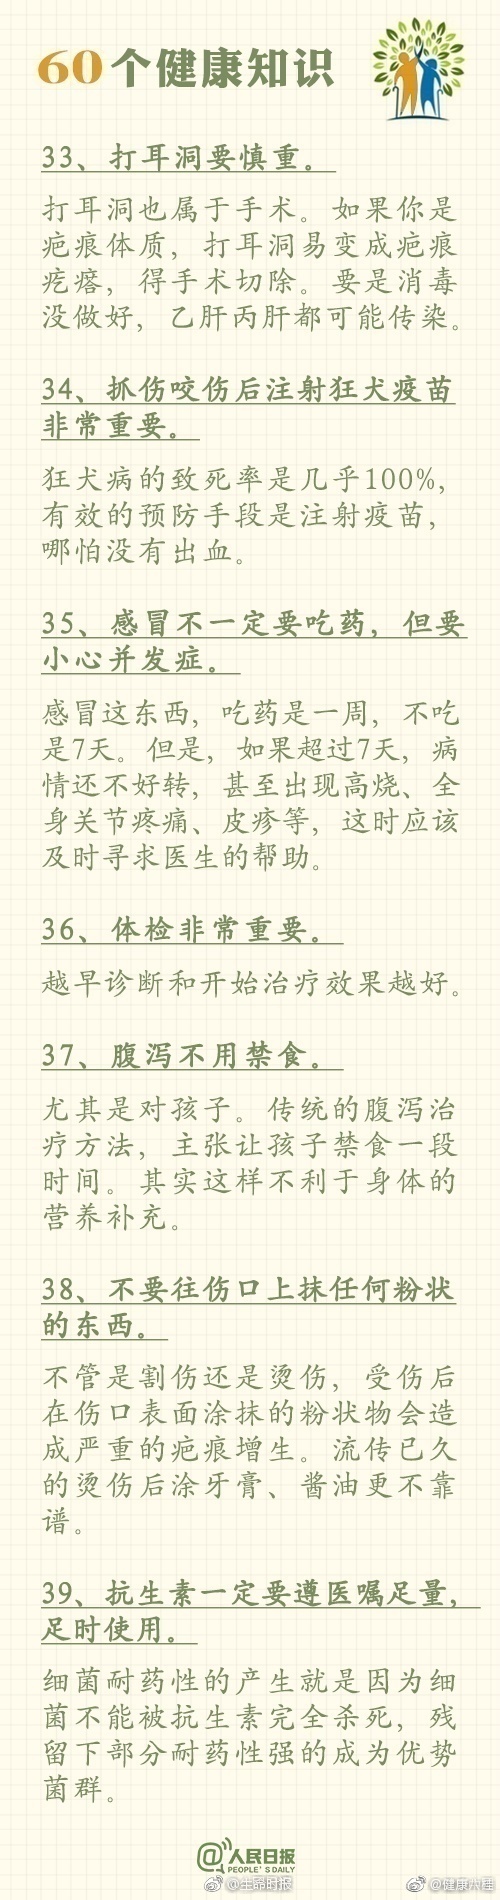 60个健康知识
33、打耳洞要慎重。
打耳洞也属于手术。如果你是
疤痕体质，打耳洞易变成疤痕
疙瘩，得手术切除。要是消毒
没做好，乙肝丙肝都可能传染。
34、抓伤咬伤后注射狂犬疫苗
非常重要。
狂犬病的致死率是几乎100%，
有效的预防手段是注射疫苗，
哪怕没有出血。
35、感冒不一定要吃药，但要
小心并发症。
感冒这东西，吃药是一周，不吃
是7天。但是，如果超过7天，病
情还不好转，甚至出现高烧、全
身关节疼痛、皮疹等，这时应该
及时寻求医生的帮助。
36、体检非常重要。
越早诊断和开始治疗效果越好。
37、腹泻不用禁食。
尤其是对孩子。传统的腹泻治
疗方法，主张让孩子禁食一段
时间。其实这样不利于身体的
营养补充。
38、不要往伤口上抹任何粉状
的东西。
不管是割伤还是烫伤，受伤后
在伤口表面涂抹的粉状物会造
成严重的疤痕增生。流传已久
的烫伤后涂牙膏、酱油更不靠
谱。
39、抗生素一定要遵医嘱足量，
足时使用。
细菌耐药性的产生就是因为细
菌不能被抗生素完全杀死，残
留下部分耐药性强的成为优势
菌群。
@人民日报
PEOPLE'S DAILY
@生命时报